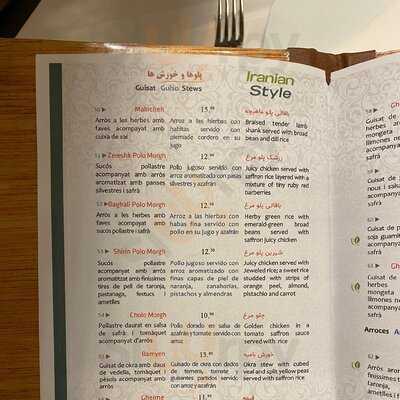 پلوها و خورش ها
Guisat Guiso Stews
Iranian
Style
50 Mahicheh 15.90 باقالی پلو ماهیچه
Arròs a les herbes amb Arroz a las hierbas con Braised tender lamb
faves acompanyat amb habitas servido con shank served with broad
cuixa de xai piernade cordero en su bean and dill rice
jugo
51 Zereshk Polo Morgh 12.90 زرشک پلو مرغ
Sucós pollastre Pollo jugoso servido con Juicy chicken served with
acompanyat amb arròs arroz aromatizado con pasas saffron rice layered with a
aromatizat amb panses silvestres y azafrán mixture of tiny ruby red
silvestres i safrà barberries
52 Baghali Polo Morgh 12.90 باقالی پلو مرغ
Arròs a les herbes amb Arroz a las hierbas con Herby green rice with
faves acompanyat amb habas fina servido con emerald-green broad
sucós pollastre i safrà pollo en su jugo y azafrán beans served with
saffron juicy chicken
53 Shirin Polo Morgh 12.50 شیرین پلو مرغ
Sucós pollastre Pollo jugoso servido con Juicy chicken served with
acompanyat amb arròs arroz aromatizado con Jeweled rice; a sweet rice
aromatizat amb finíssimes finas capas de piel de studded with strips of
tires de pell de taronja, naranja, zanahorias, orange peel, almond,
pastanaga, festucs i pistachos y almendras pistachio and carrot
ametlles
54 Cholo Morgh 10.90 چلو مرغ
Pollastre daurat en salsa Pollo dorado en salsa de Golden chicken in a
de safrà; i tomàquet azafrán y tomate servido con tomato saffron sauce
acompanyat d'arròs arroz served with rice
55 Bamyeh 13.90 خورش بامیه
Guisat de okra amb daus Guisado de okra con dados Okra stew with cubed
de vedella, tomàquet i de ternera, tomate y veal and split yellow peas
pèsols acompanyat amb guisantes partidos servido served with saffron rice
arròs con arroz y azafrán
Gheime
58
Guisat de
herbes a
mongeta
llimones ne
acompanya
safrà
59
Gui
nous i salsa
acompanyat
safrà
60
Pollastre
soja guarnit
acompanyat
Gh
Guisat de
herbes
mongeta
llimones ne
acompanya
safrà
Arroces Arr
62
Arròs aron
finíssimes ti
taronja,
ametlles